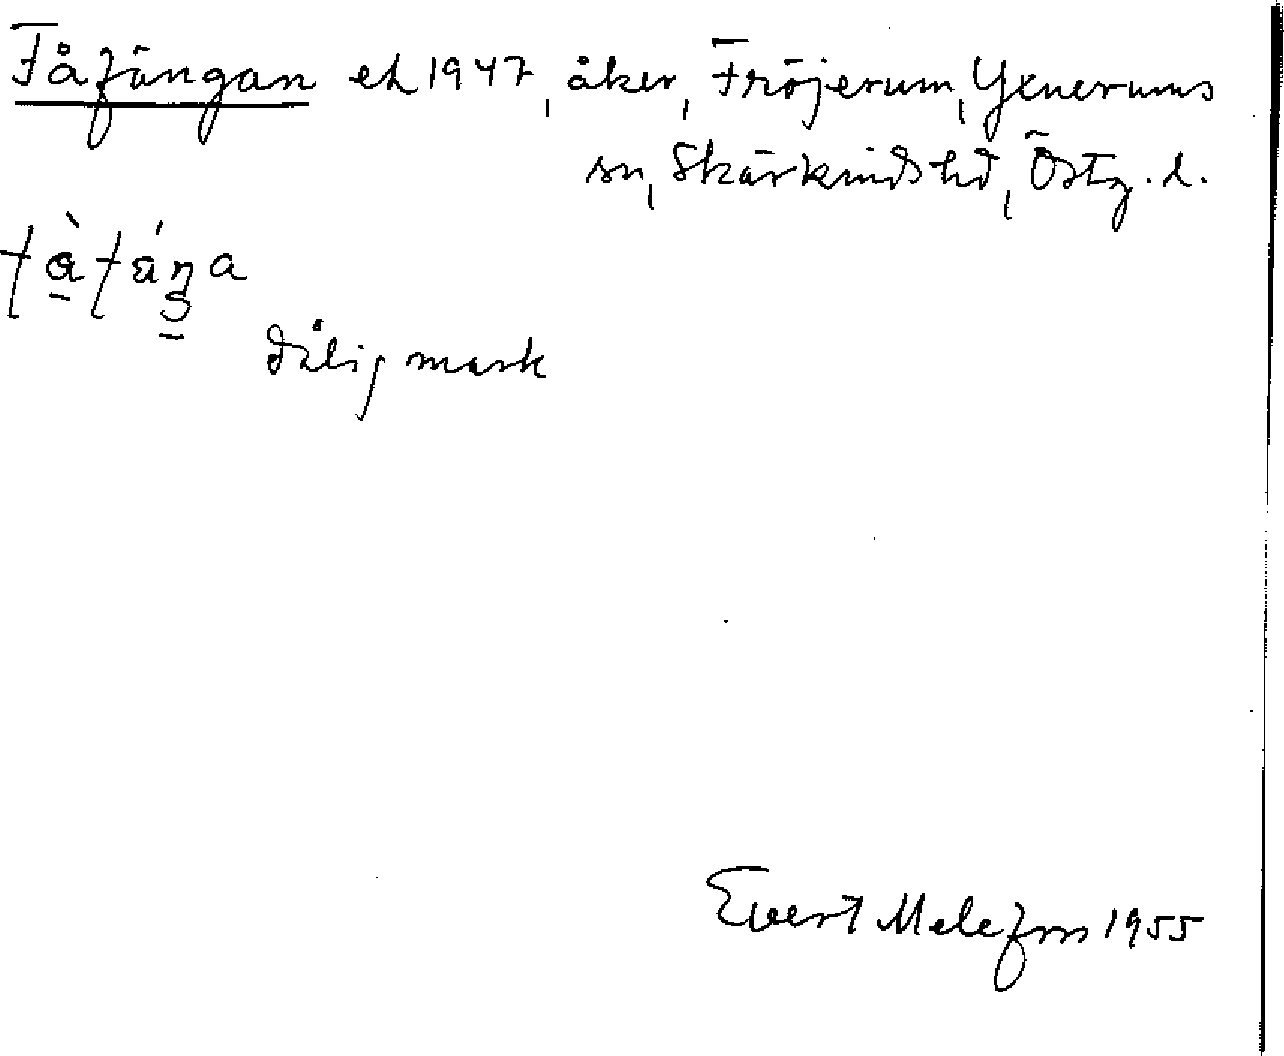 Fåfängan ek 1947, åker, Fröjerum, Yxnerums
sn, Skärkinds hd, Östg. l.
dålig mark
Evert Melefors 1955